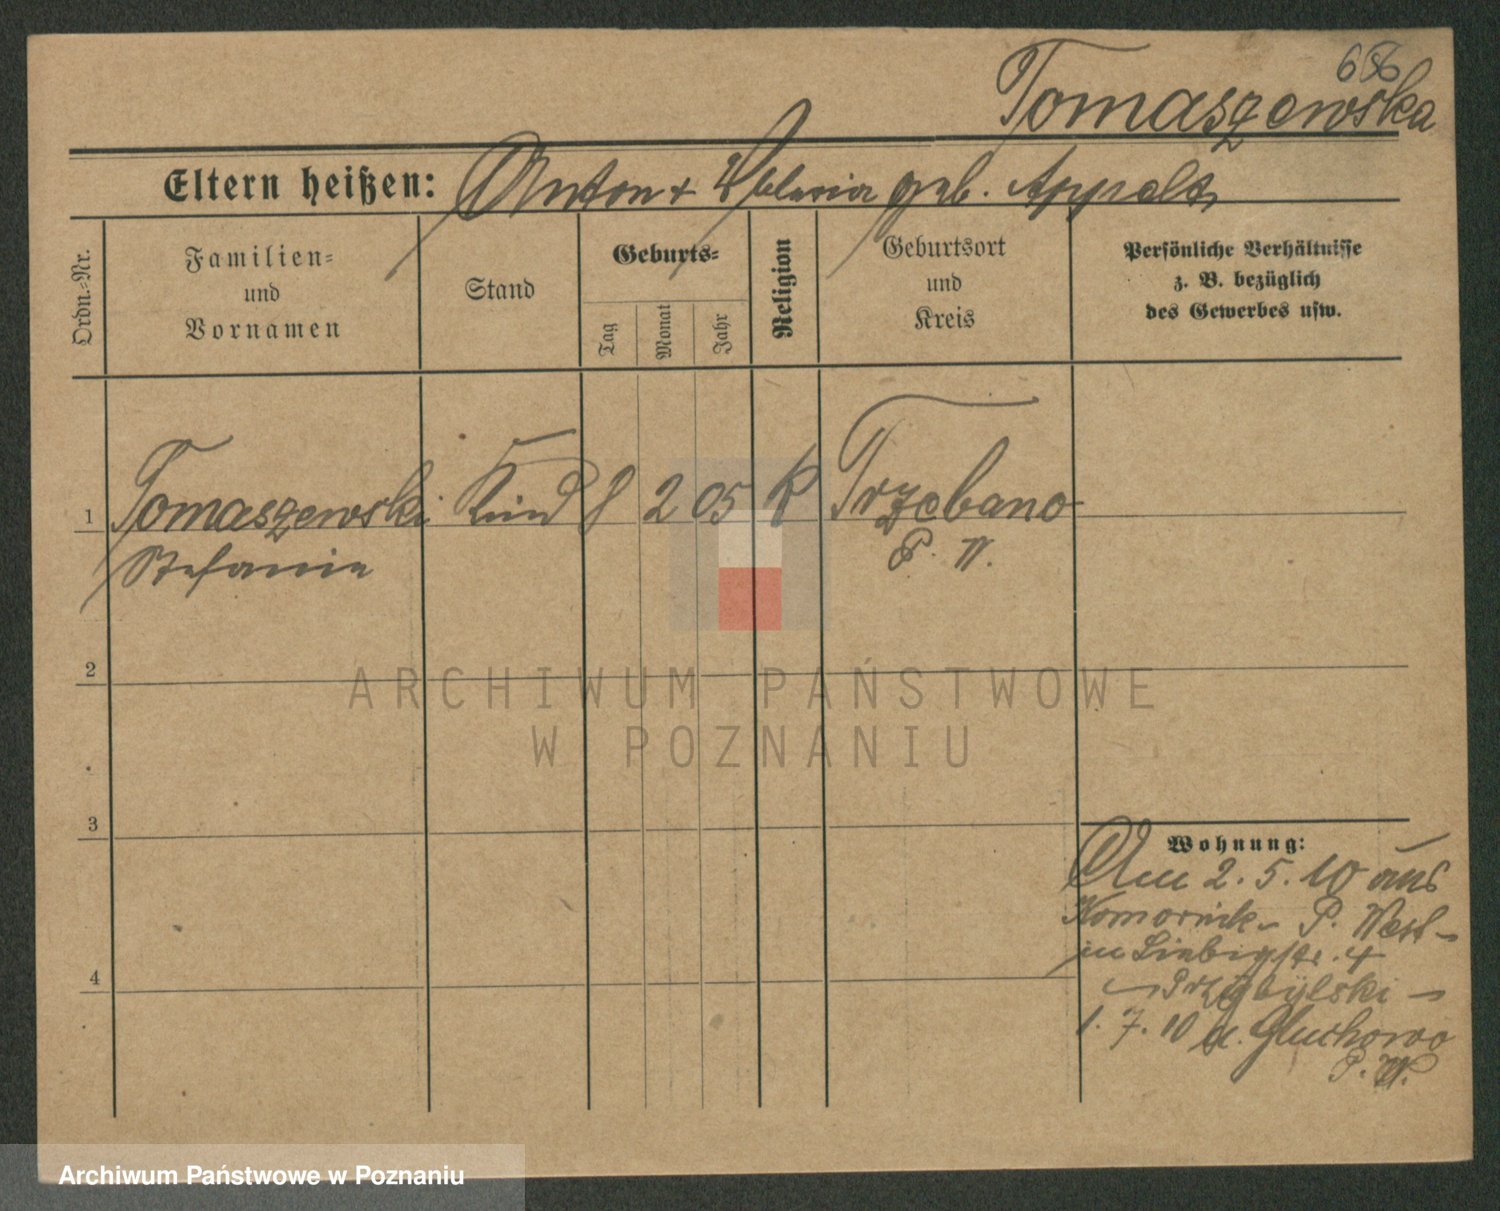 656
Tomaszewska
Eltern heißen: Anton + geb. Appelt
Ordn.-Nr.
Familien-
und
Vornamen
Stand
Geburts-
Tag
Monat
Jahr
Religion
Geburtsort
und
Kreis
Persönliche Verhältnisse
z. B. bezüglich
des Gewerbes usw.
1 Tomaszewski Kind 8 2 05 K Trzebano
Stefania P. W.
2
3
4
Wohnung:
Am 2. 5. 10 aus
Komornik - P. West -
in Liebigstr. 4
- Przybylski -
1. 7. 10 n. Gluchowo
P. W.
ARCHIWUM PAŃSTWOWE
W POZNANIU
Archiwum Państwowe w Poznaniu